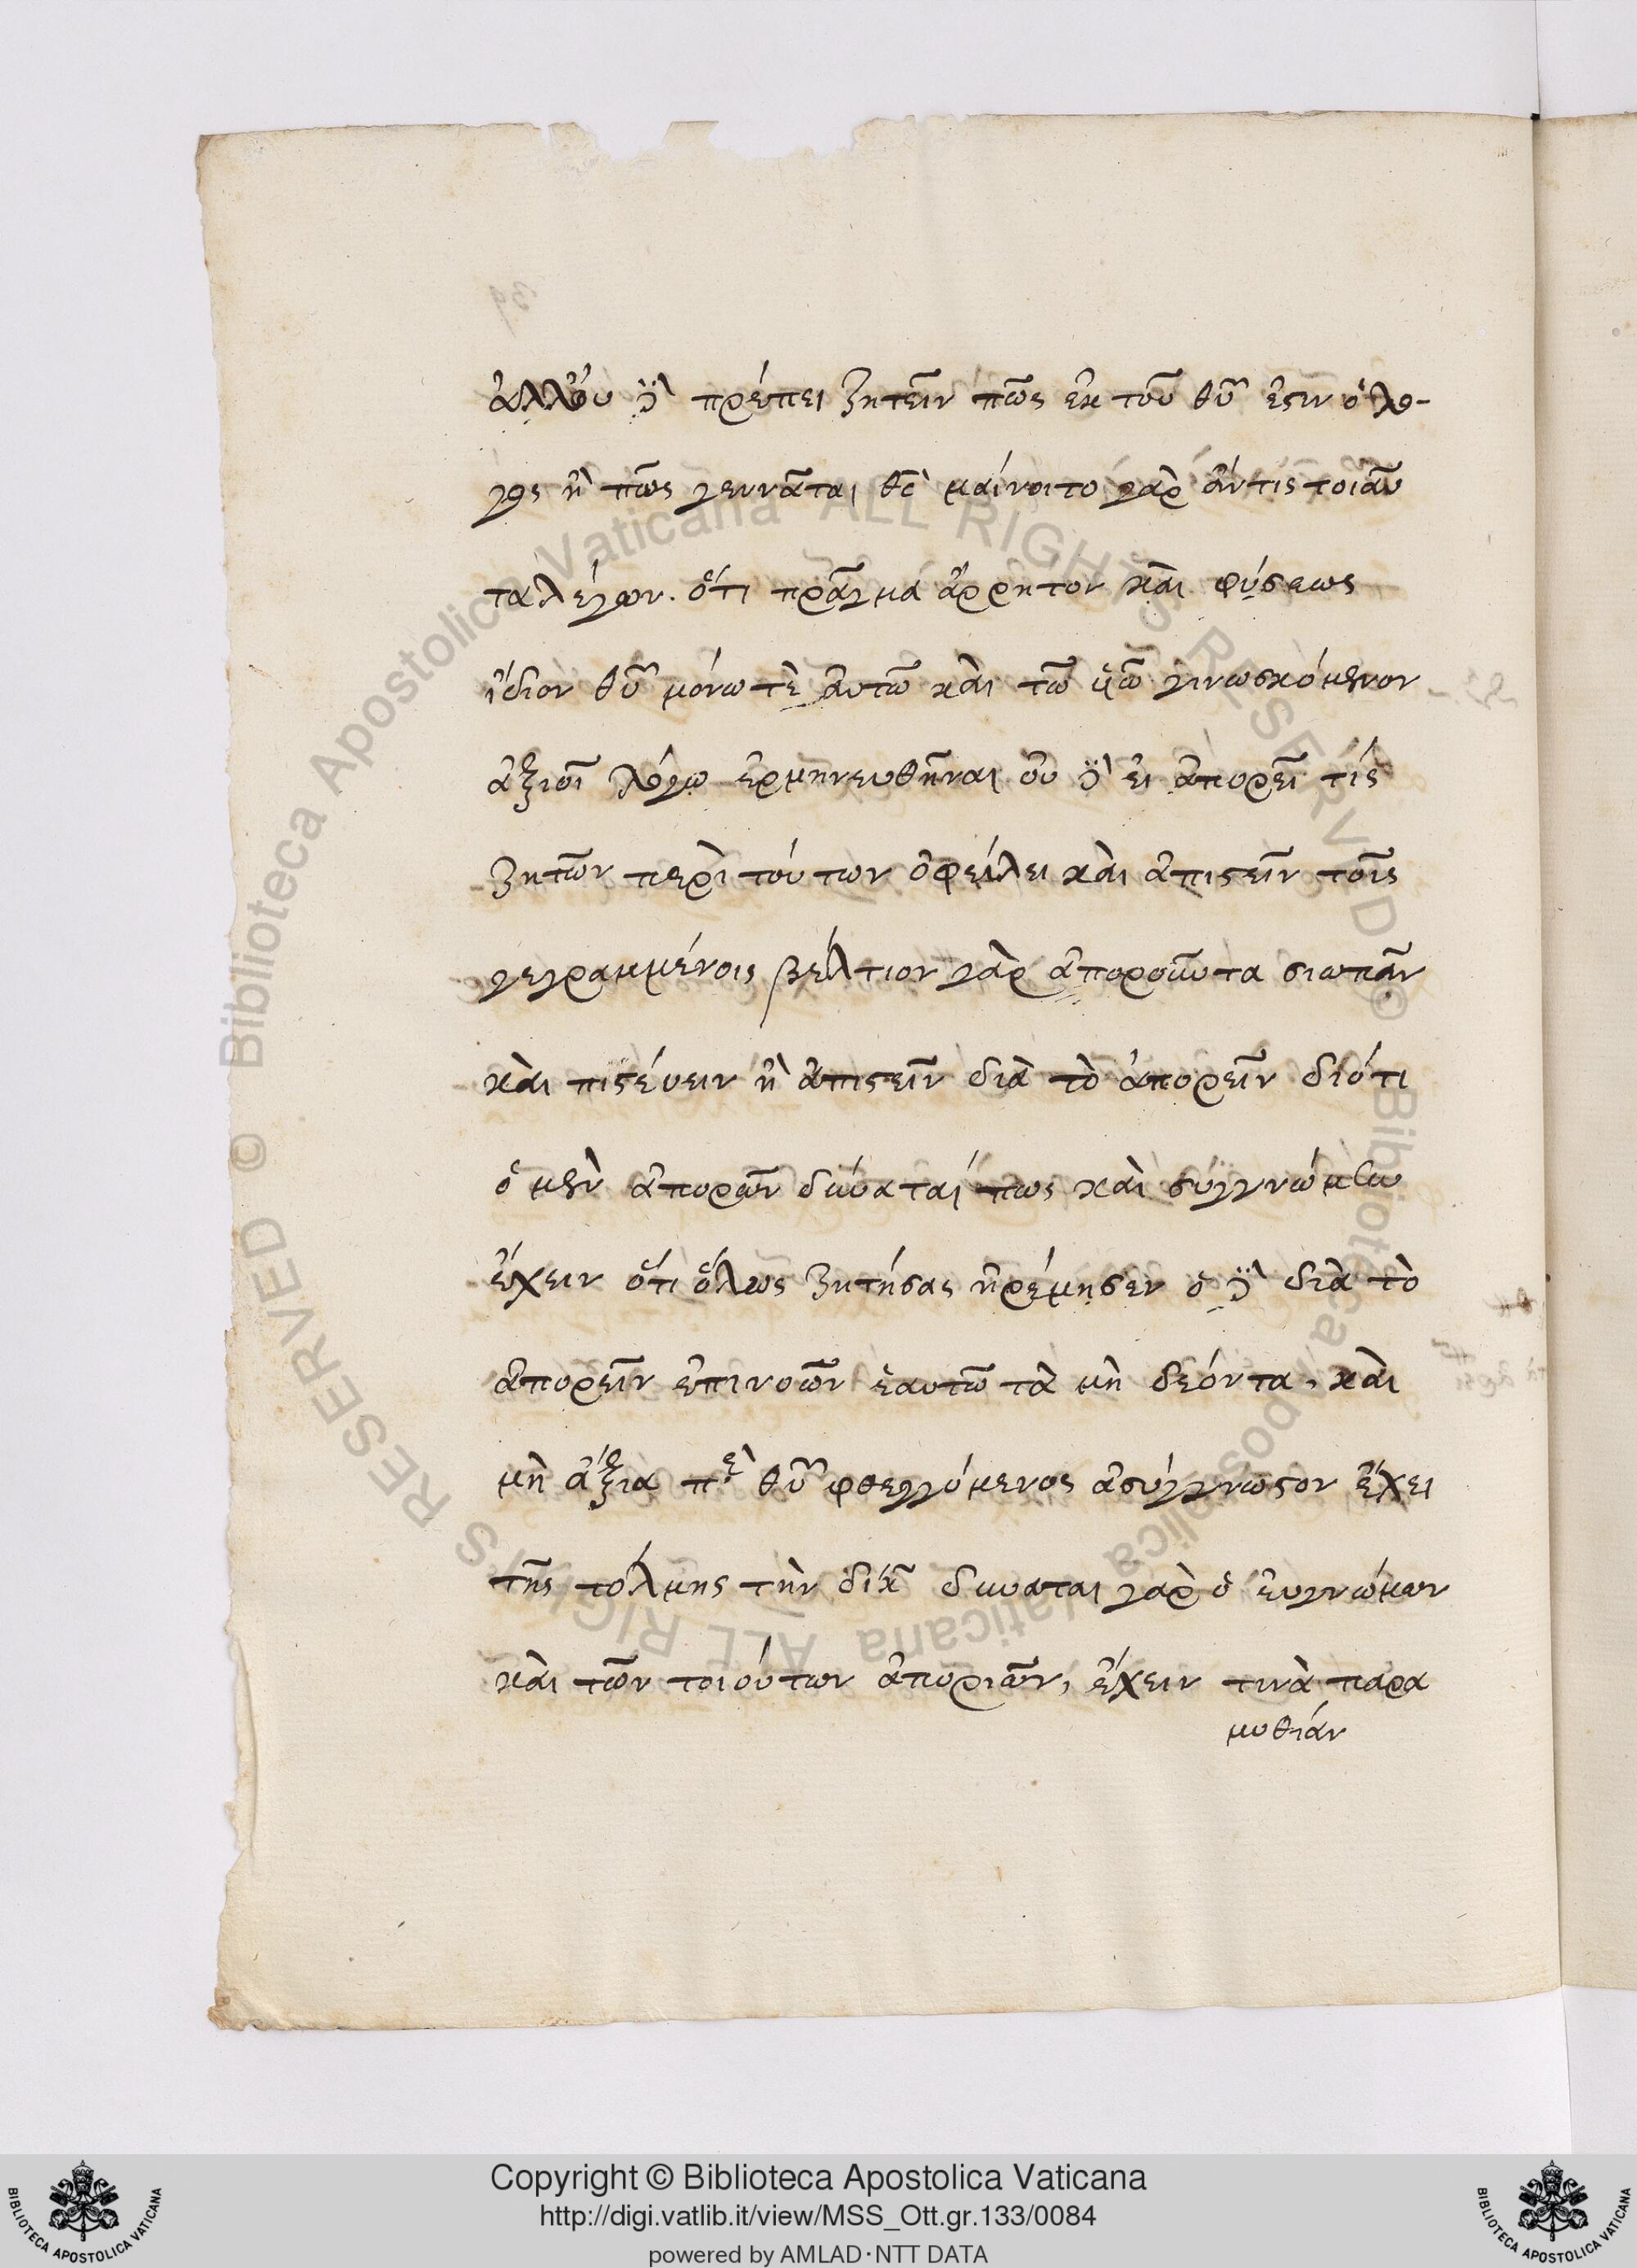 ἀλλ' οὐ δὲ πρέπει ζητεῖν πῶς ἐκ τοῦ θυ̅ ἐστιν ὁ λό-
γος ἢ πῶς γεννᾶται θς̅ μαίνοιτο γὰρ ἄν τις τοιαῦ
τα λέγων. ὅτι πρᾶγμα ἄρρητον καὶ φύσεως
ἴδιον θυ̅ μόνω τὲ αὐτῶ καὶ τῶ υἱῶ γινωσκόμενον
ἀξιοῖ λόγω ἑρμηνευθῆναι οὐ δὲ εἰ ἀπορεῖ τίς
ζητῶν περὶ τούτων ὀφείλει καὶ ἀπιστεῖν τοῖς
γεγραμμένοις βέλτιον γὰρ ἀποροῦντα σιωπᾶν
καὶ πιστεύειν ἢ ἀπιστεῖν διὰ τὸ ἀπορεῖν διότι
ὁ μὲν ἀπορῶν δύναταί πως καὶ συγγνώμην
ἔχειν ὅτι ὅλως ζητήσας ἠρέμησεν ὁ δὲ διὰ τὸ
ἀπορεῖν ἐπινοῶν ἑαυτῶ τὰ μὴ δέοντα, καὶ
μὴ ἄξια πὲ θυ̅ φθεγγόμενος ἀσύγγνωστον ἔχει
τῆς τόλμης τὴν δίκην δύναται γὰρ ὁ εὐγνώμων
καὶ τῶν τοιούτων ἀποριῶν, ἔχειν τινὰ παρα
μυθιάν
Copyright © Biblioteca Apostolica Vaticana
http://digi.vatlib.it/view/MSS_Ott.gr.133/0084
powered by AMLAD·NTT DATA
BIBLIOTECA APOSTOLICA VATICANA
BIBLIOTECA APOSTOLICA VATICANA
© Biblioteca Apostolica Vaticana ALL RIGHTS RESERVED © Biblioteca Apostolica Vaticana ALL RIGHTS RESERVED